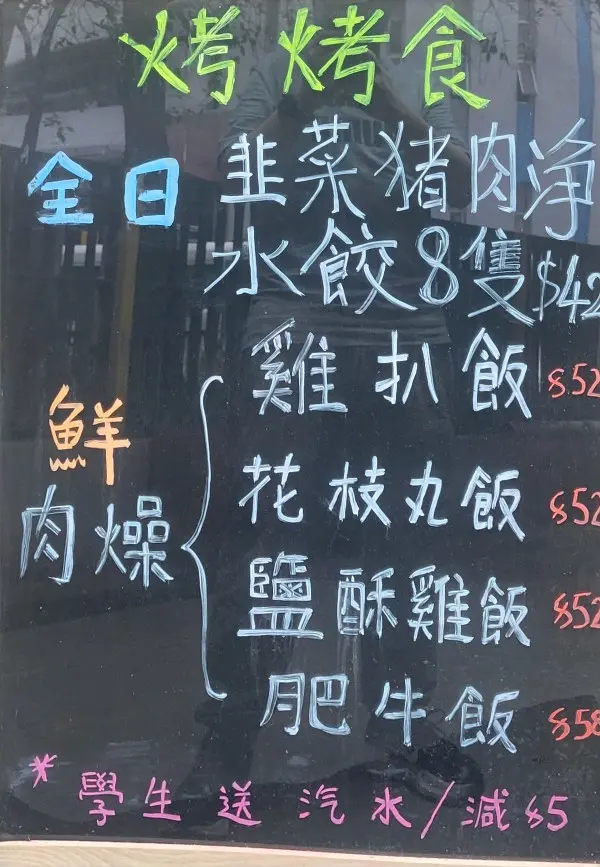 烤烤食
全日 韭菜豬肉淨
水餃8隻$42
雞扒飯 $52
鮮
花枝丸飯 $52
肉燥
鹽酥雞飯 $52
肥牛飯 $58
*學生送汽水/減$5